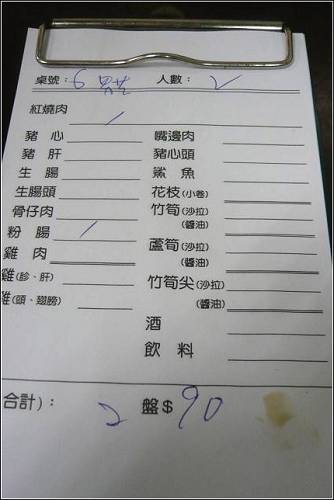 桌號：9 人數：2
紅燒肉 /
豬心 嘴邊肉
豬肝 豬心頭
生腸 鯊魚
生腸頭 花枝(小卷)
骨仔肉 竹筍(沙拉)
(醬油)
粉腸 /
雞肉 蘆筍(沙拉)
(醬油)
雞(胗、肝) 竹筍尖(沙拉)
(醬油)
雞(頭、翅膀)
酒
飲料
合計)： 2 盤$90